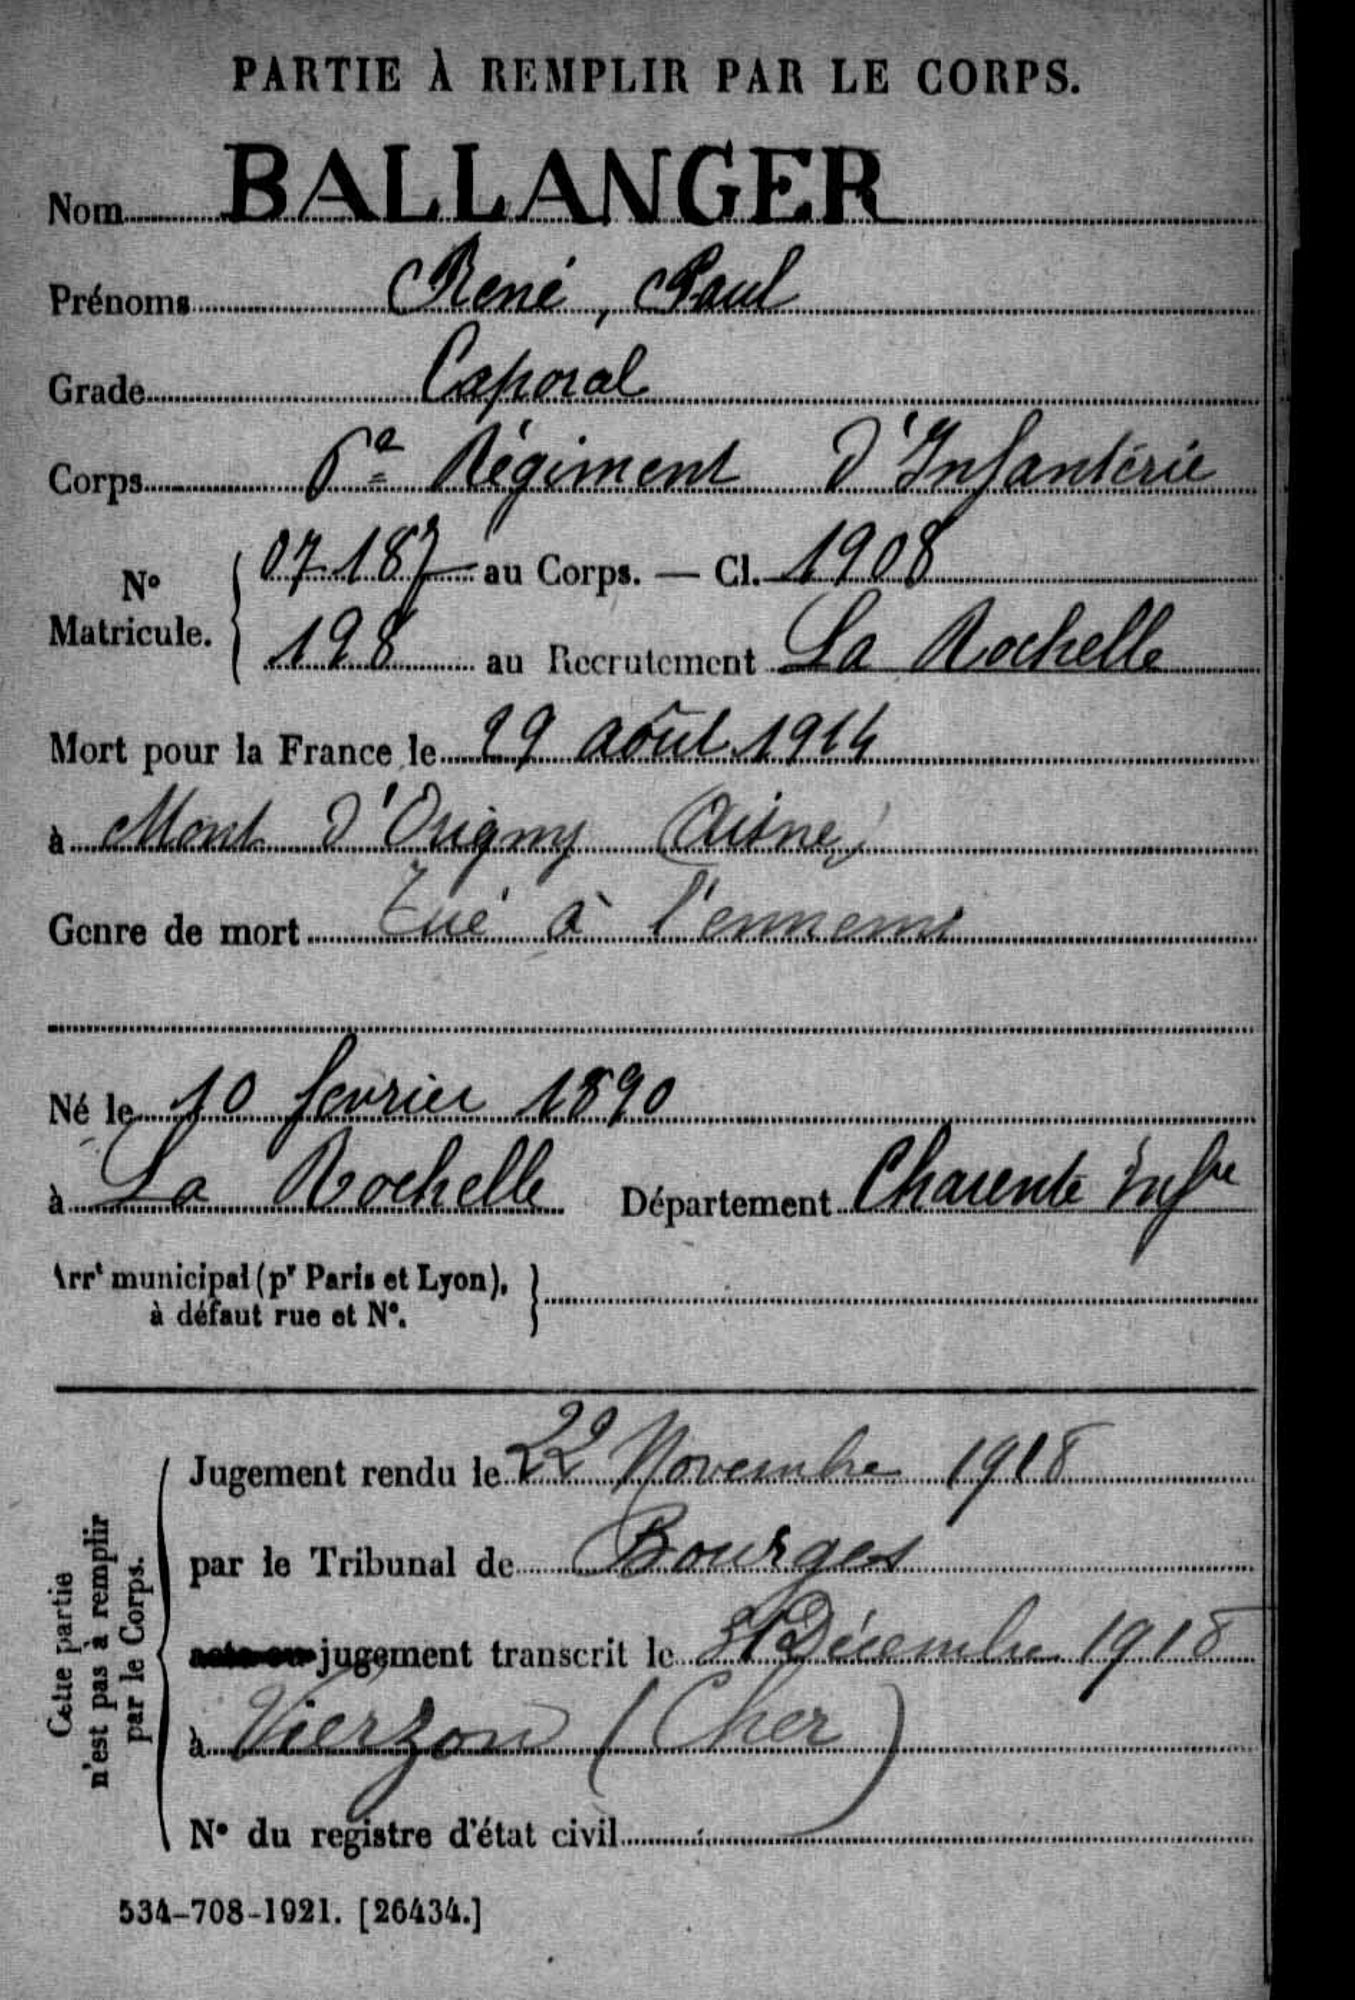 PARTIE À REMPLIR PAR LE CORPS.
Nom BALLANGER
Prénoms René, Paul
Grade Caporal
Corps 6e Régiment d'Infanterie
No Matricule. 07187 au Corps. — Cl. 1908
198 au Recrutement La Rochelle
Mort pour la France le 29 août 1914
à Mont d'Origny (Aisne)
Genre de mort Tué à l'ennemi
Né le 10 février 1890
à La Rochelle Département Charente Infre
Arrt municipal (pr Paris et Lyon),
à défaut rue et No.
Cette partie
n'est pas à remplir
par le Corps.
Jugement rendu le 22 Novembre 1918
par le Tribunal de Bourges
acte ou jugement transcrit le 31 Décembre 1918
à Vierzon (Cher)
No du registre d'état civil
534-708-1921. [26434.]